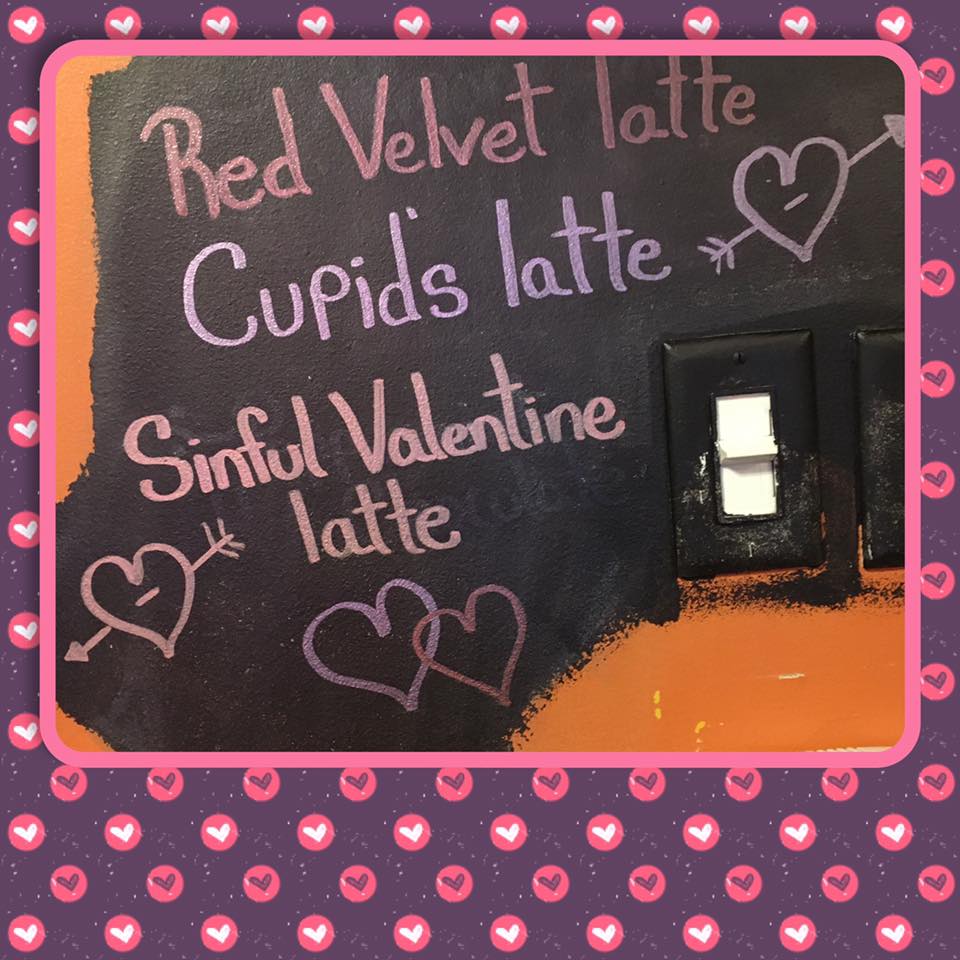 Red Velvet latte
Cupid's latte
Sinful Valentine
latte